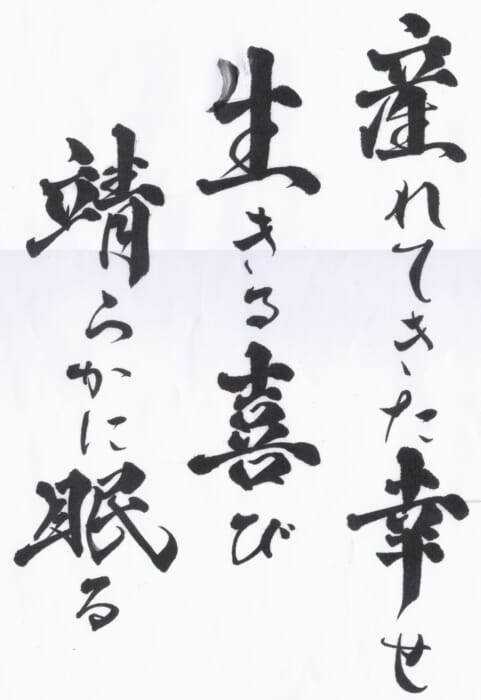 産れてきた幸せ
生きる喜び
靖らかに眠る